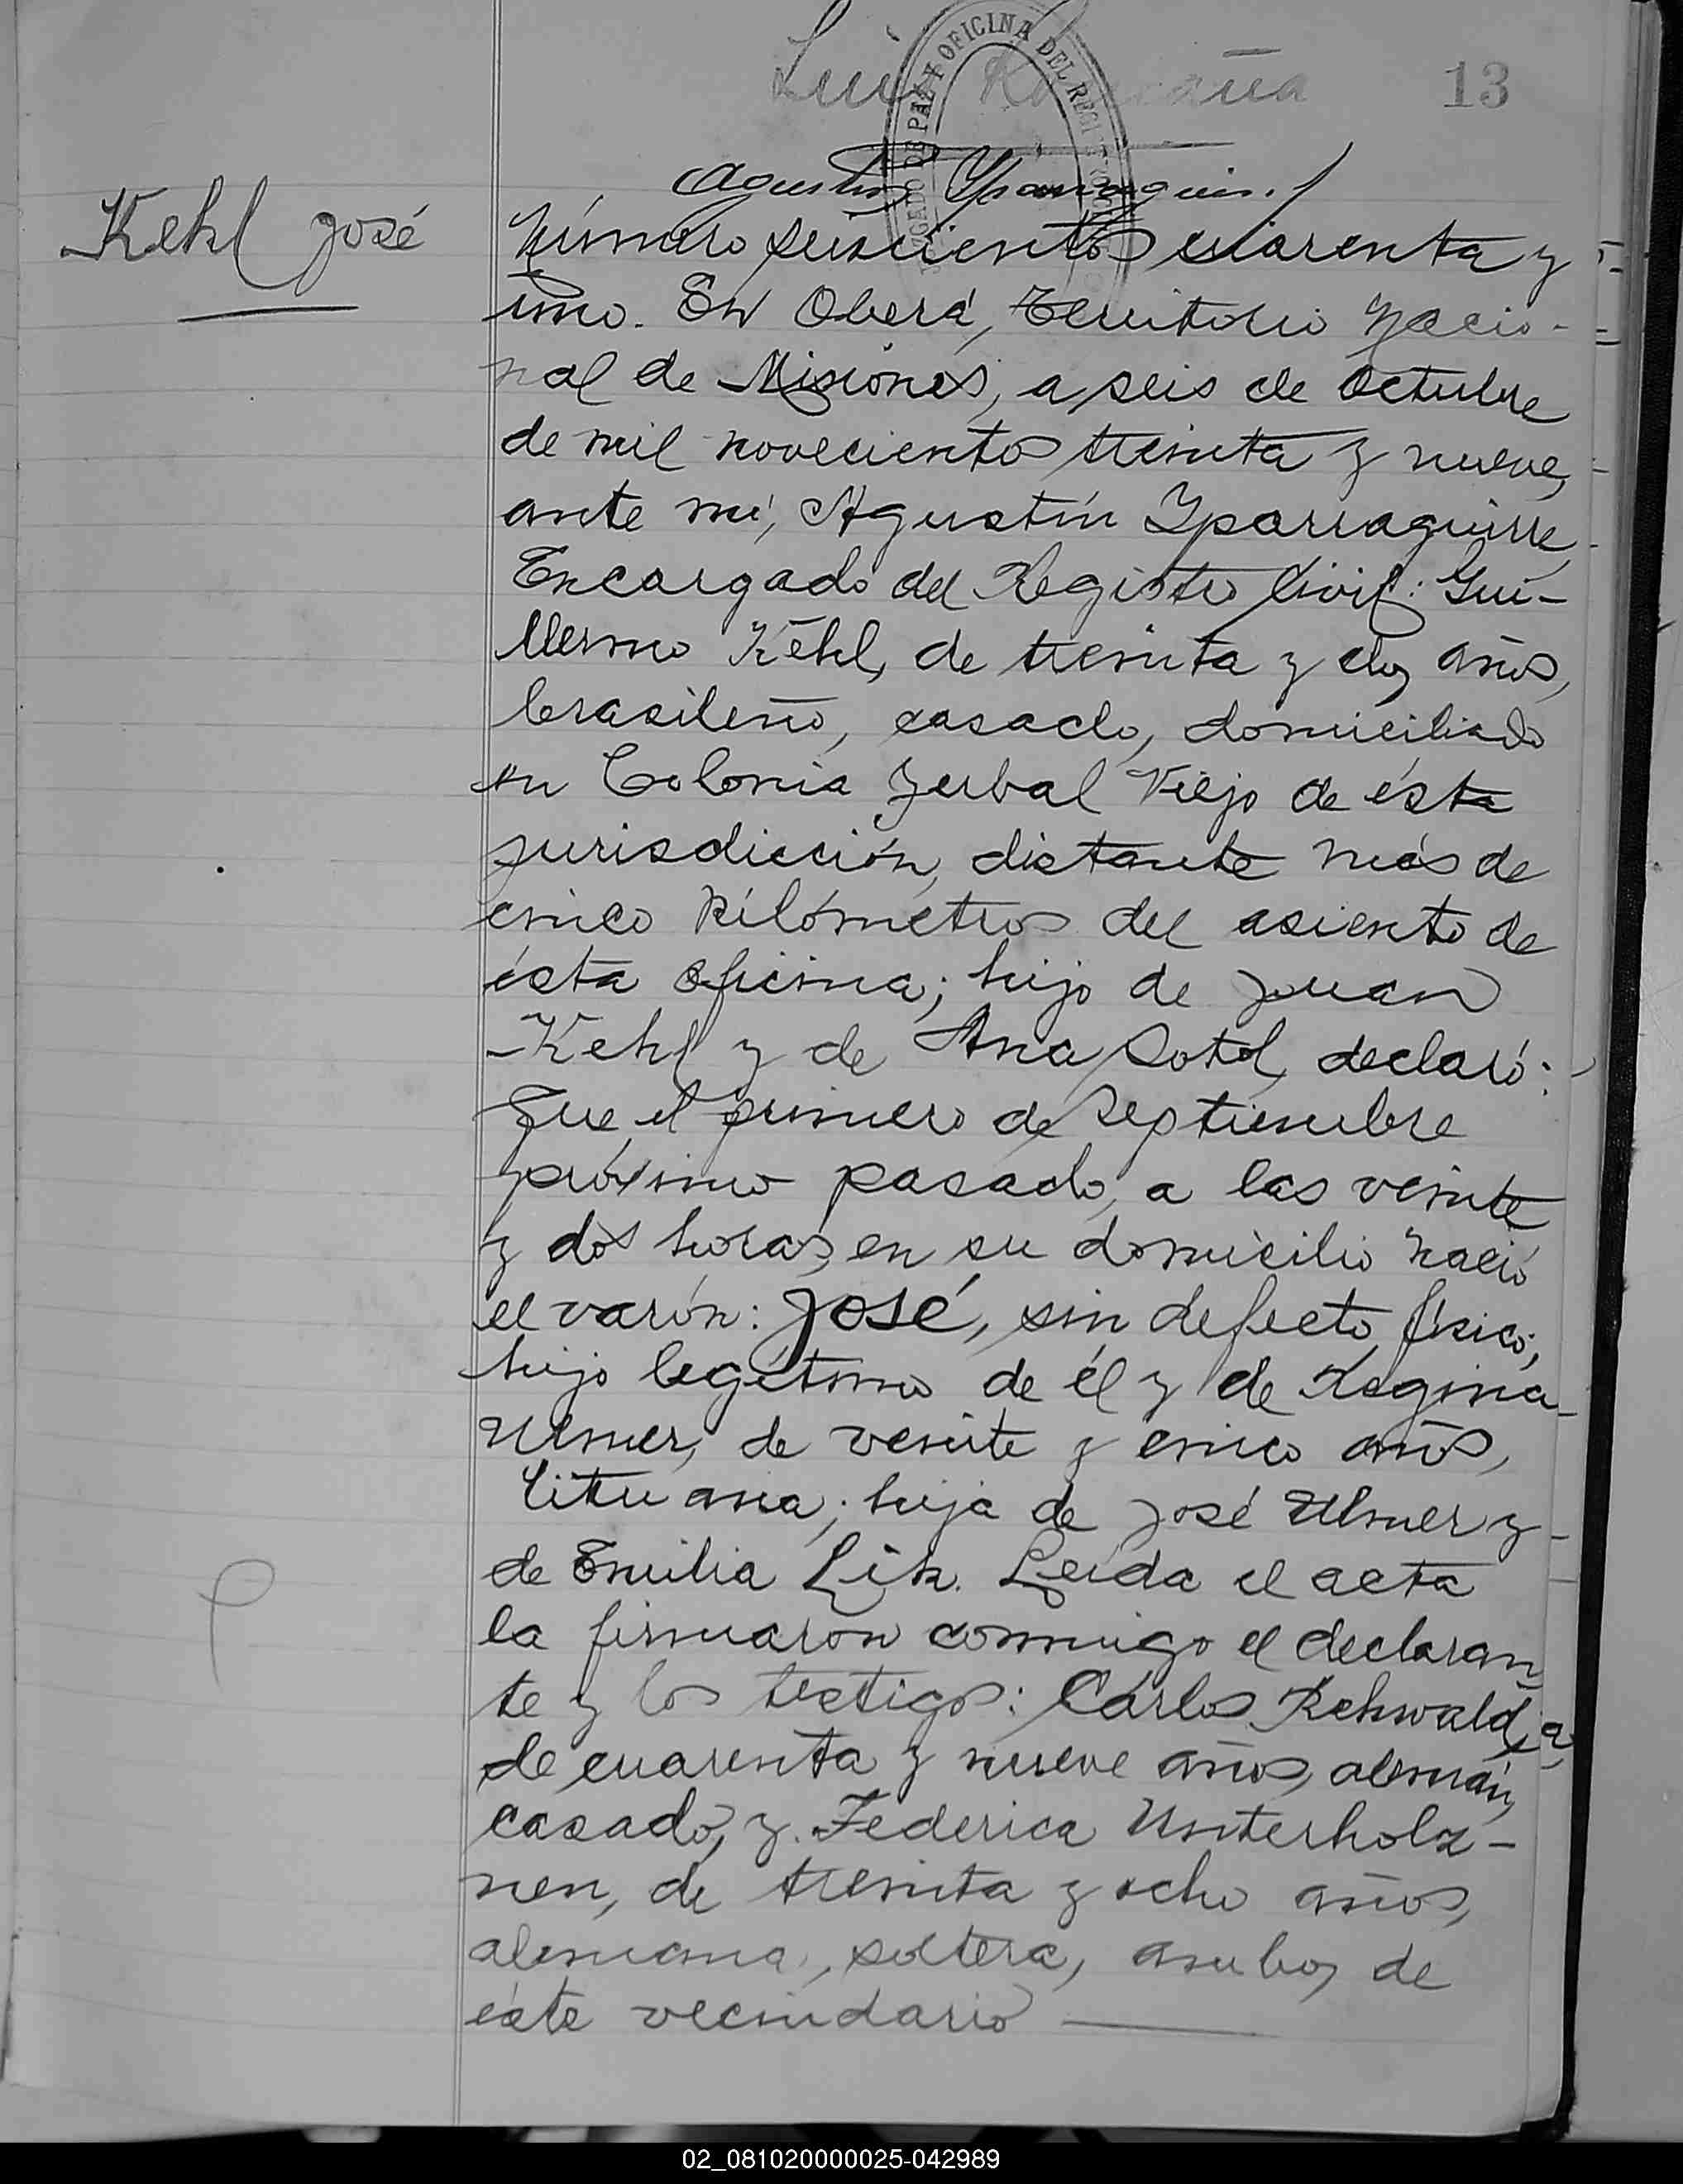 Luis
13
JUZGADO DE PAZ Y OFICINA DEL REGISTRO
Agustín Yparraguirre
Kehl José
Número seiscientos cuarenta y
uno. En Oberá, Territorio Nacio-
nal de Misiones, a seis de octubre
de mil novecientos treinta y nueve,
ante mí, Agustín Yparraguirre,
Encargado del Registro Civil: Gui-
llermo Kehl, de treinta y dos años,
brasileño, casado, domiciliado
en Colonia Yerbal Viejo de ésta
jurisdicción, distante más de
cinco kilómetros del asiento de
ésta oficina; hijo de Juan
Kehl y de Ana Sotol, declaró:
Que el primero de Septiembre
próximo pasado, a las veinte
y dos horas, en su domicilio nació
el varón: José, sin defecto físico;
hijo legítimo de él y de Regina
Ulmer, de veinte y cinco años,
lituana; hija de José Ulmer y
de Emilia Lik. Leída el acta
la firmaron conmigo el declaran
te y los testigos: Carlos Rehwald,
de cuarenta y nueve años, alemán,
casado, y Federica Unterholz-
nen, de treinta y ocho años,
alemana, soltera, ambos de
éste vecindario
02_081020000025-042989